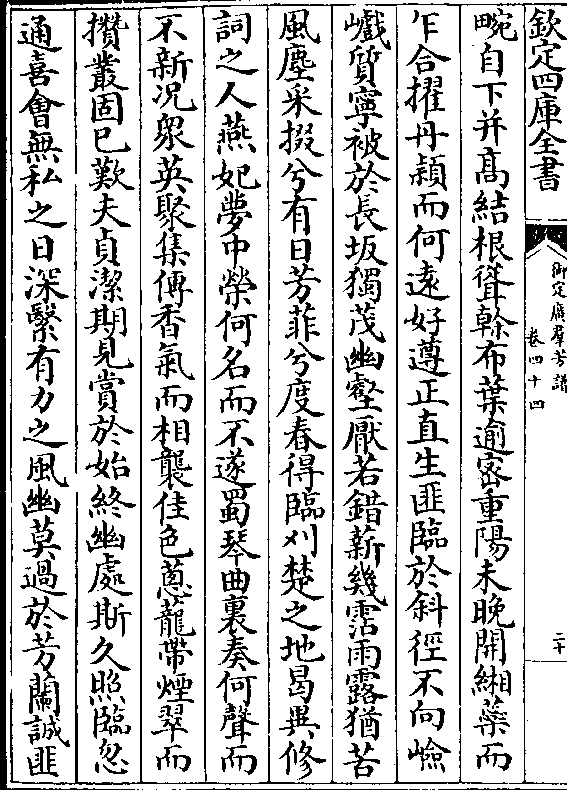 欽定四庫全書
御定廣羣芳譜
卷四十四
二十
畹自下并髙結根聳榦布葉逾宻重陽未晚開緗蘂而
乍合擢丹穎而何逺好遵正直生匪臨於斜徑不向嶮
巇質寧被於長坂獨茂幽壑厭若錯薪幾霑雨露猶苦
風塵采掇兮有日芳菲兮度春得臨刈楚之地曷異修
詞之人燕妃夢中榮何名而不遂蜀琴曲裏奏何聲而
不新况衆英聚集傳香氣而相襲佳色蔥蘢帶煙翠而
攢叢固已歎夫貞潔期見賞於始終幽處斯久照臨忽
通喜會無私之日深繫有力之風幽莫過於芳蘭誠匪